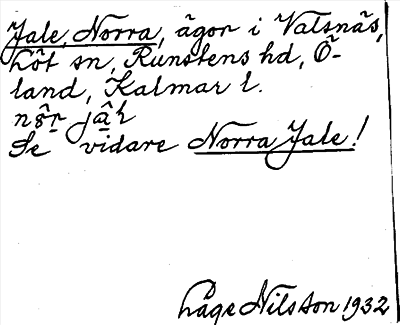 Jale, Norra, ägor i Valsnäs,
Löt sn, Runstens hd, Ö-
land, Kalmar l.
Se vidare Norra Jale!
Åge Nilsson 1932